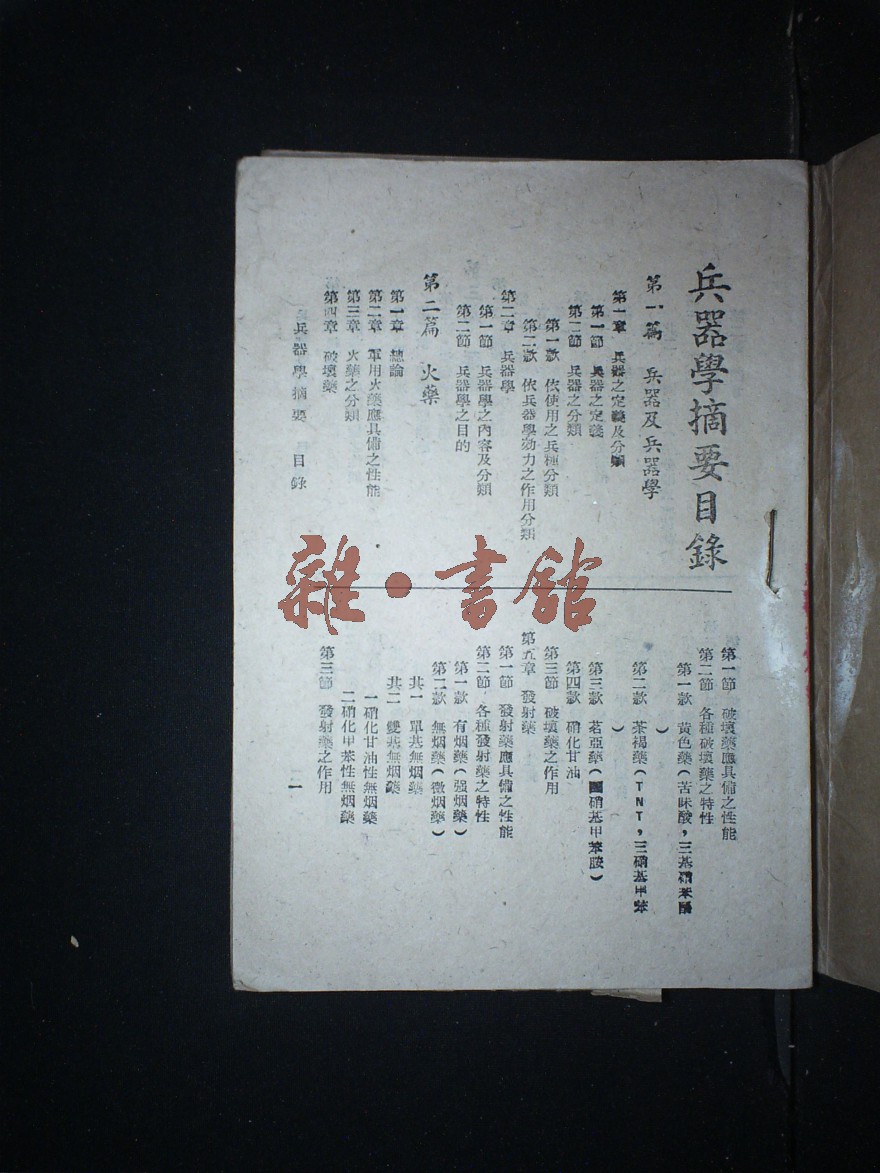 兵器學摘要目錄
第一篇 兵器及兵器學
第一章 兵器之定義及分類
第一節 兵器之定義
第二節 兵器之分類
第一款 依使用之兵種分類
第二款 依兵器學効力之作用分類
第二章 兵器學
第一節 兵器學之內容及分類
第二節 兵器學之目的
第二篇 火藥
第一章 總論
第二章 軍用火藥應具備之性能
第三章 火藥之分類
第四章 破壞藥
兵器學摘要 目錄
第一節 破壞藥應具備之性能
第二節 各種破壞藥之特性
第一款 黃色藥(苦味酸,三基硝苯醇
)
第二款 茶褐藥(TNT,三硝基甲苯
)
第三款 茗亞藥(硝基甲苯胺)
第四款 硝化甘油
第三節 破壞藥之作用
第五章 發射藥
第一節 發射藥應具備之性能
第二節 各種發射藥之特性
第一款 有烟藥(强烟藥)
第二款 無烟藥(微烟藥)
共一 單基無烟藥
共二 雙基無烟藥
一硝化甘油性無烟藥
二硝化甲苯性無烟藥
第三節 發射藥之作用
一
雜·書館